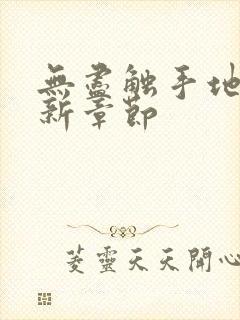 無盡触手地
新章節
菱靈天天開心